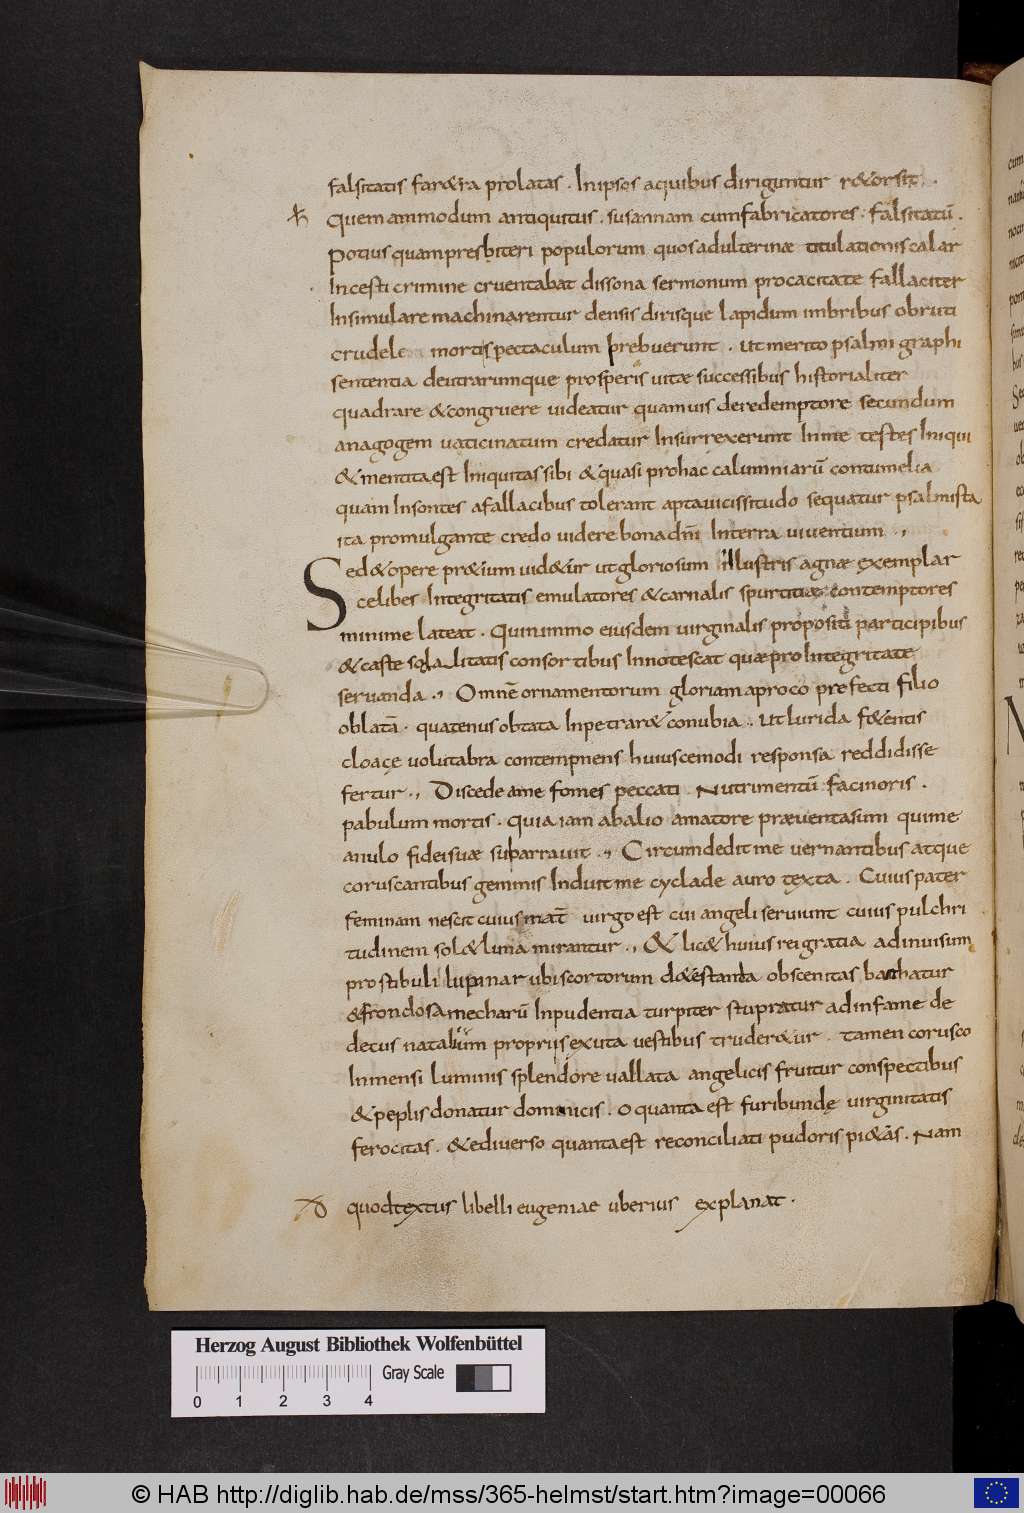 falsitatis far&ra prolatas . In ipsos a quibus diriguntur r&orsit .
Quemammodum antiquitus . susannam cum fabricatores . falsitatū .
Potius quam presbiteri populorum quos adulterinæ titulationis calar
Incesti crimine cruentabat dissona sermonum procacitate fallaciter
Insimulare machinarentur densis dirisque lapidum imbribus obruti
crudele mortis spectaculum prebuerunt . ut merito psalmi graphi
sententia deutrarumque prosperis uitæ successibus historialiter
quadrare & congruere uideatur quamuis de redemptore secundum
anagogem uaticinatum credatur Insurrexerunt In me testes Iniqui
& mentita est Iniquitas sibi & quasi pro hac calumniarū contumelia
quam Insontes a fallacibus tolerant apta uicissitudo sequatur psalmista
ita promulgante credo uidere bona dn̄i In terra uiuentium .,
Sed & opere præ&ium uid&ur ut gloriosum illustris agnæ exemplar
celibes Integritatis emulatores & carnalis spurtitiæ contemptores
minime lateat . Quin immo eiusdem uirginalis propositi participibus
& caste sodalitatis consortibus Innotescat quæ pro Integritate
seruanda ., Omnē ornamentorum gloriam a proco prefecti filio
oblatā . quatenus obtata Inpetrar& conubia . ut lurida f&entis
cloaçe uolutabra contempnens huiuscemodi responsa reddidisse
fertur ., Discede a me fomes peccati . Nutrimentū facinoris .
pabulum mortis . quia iam ab alio amatore præuentasum qui me
anulo fidei suæ subarrauit ., Circumdedit me uernantibus atque
coruscantibus gemmis Induit me cyclade auro texta . Cuius pater
feminam nescit cuius mat̄ uirgo est cui angeli seruiunt cuius pulchri
tudinem sol & luna mirantur ., & lic& huius rei gratia ad inuisum
prostibuli lupanar ubi scortorum d&estanda obscenitas bachatur
& frondosa mecharū Inpudentia turpiter stupratur ad infame de
decus natalium propriis exuta uestibus truder&ur . tamen corusco
Inmensi luminis splendore uallata angelicis fruitur conspectibus
& peplis donatur dominicis . o quanta est furibundę uirginitatis
ferocitas . & e diuerso quanta est reconciliati pudoris pi&as . Nam
quod textus libelli eugeniae uberius explanat .
Herzog August Bibliothek Wolfenbüttel
Gray Scale
0 1 2 3 4
© HAB http://diglib.hab.de/mss/365-helmst/start.htm?image=00066